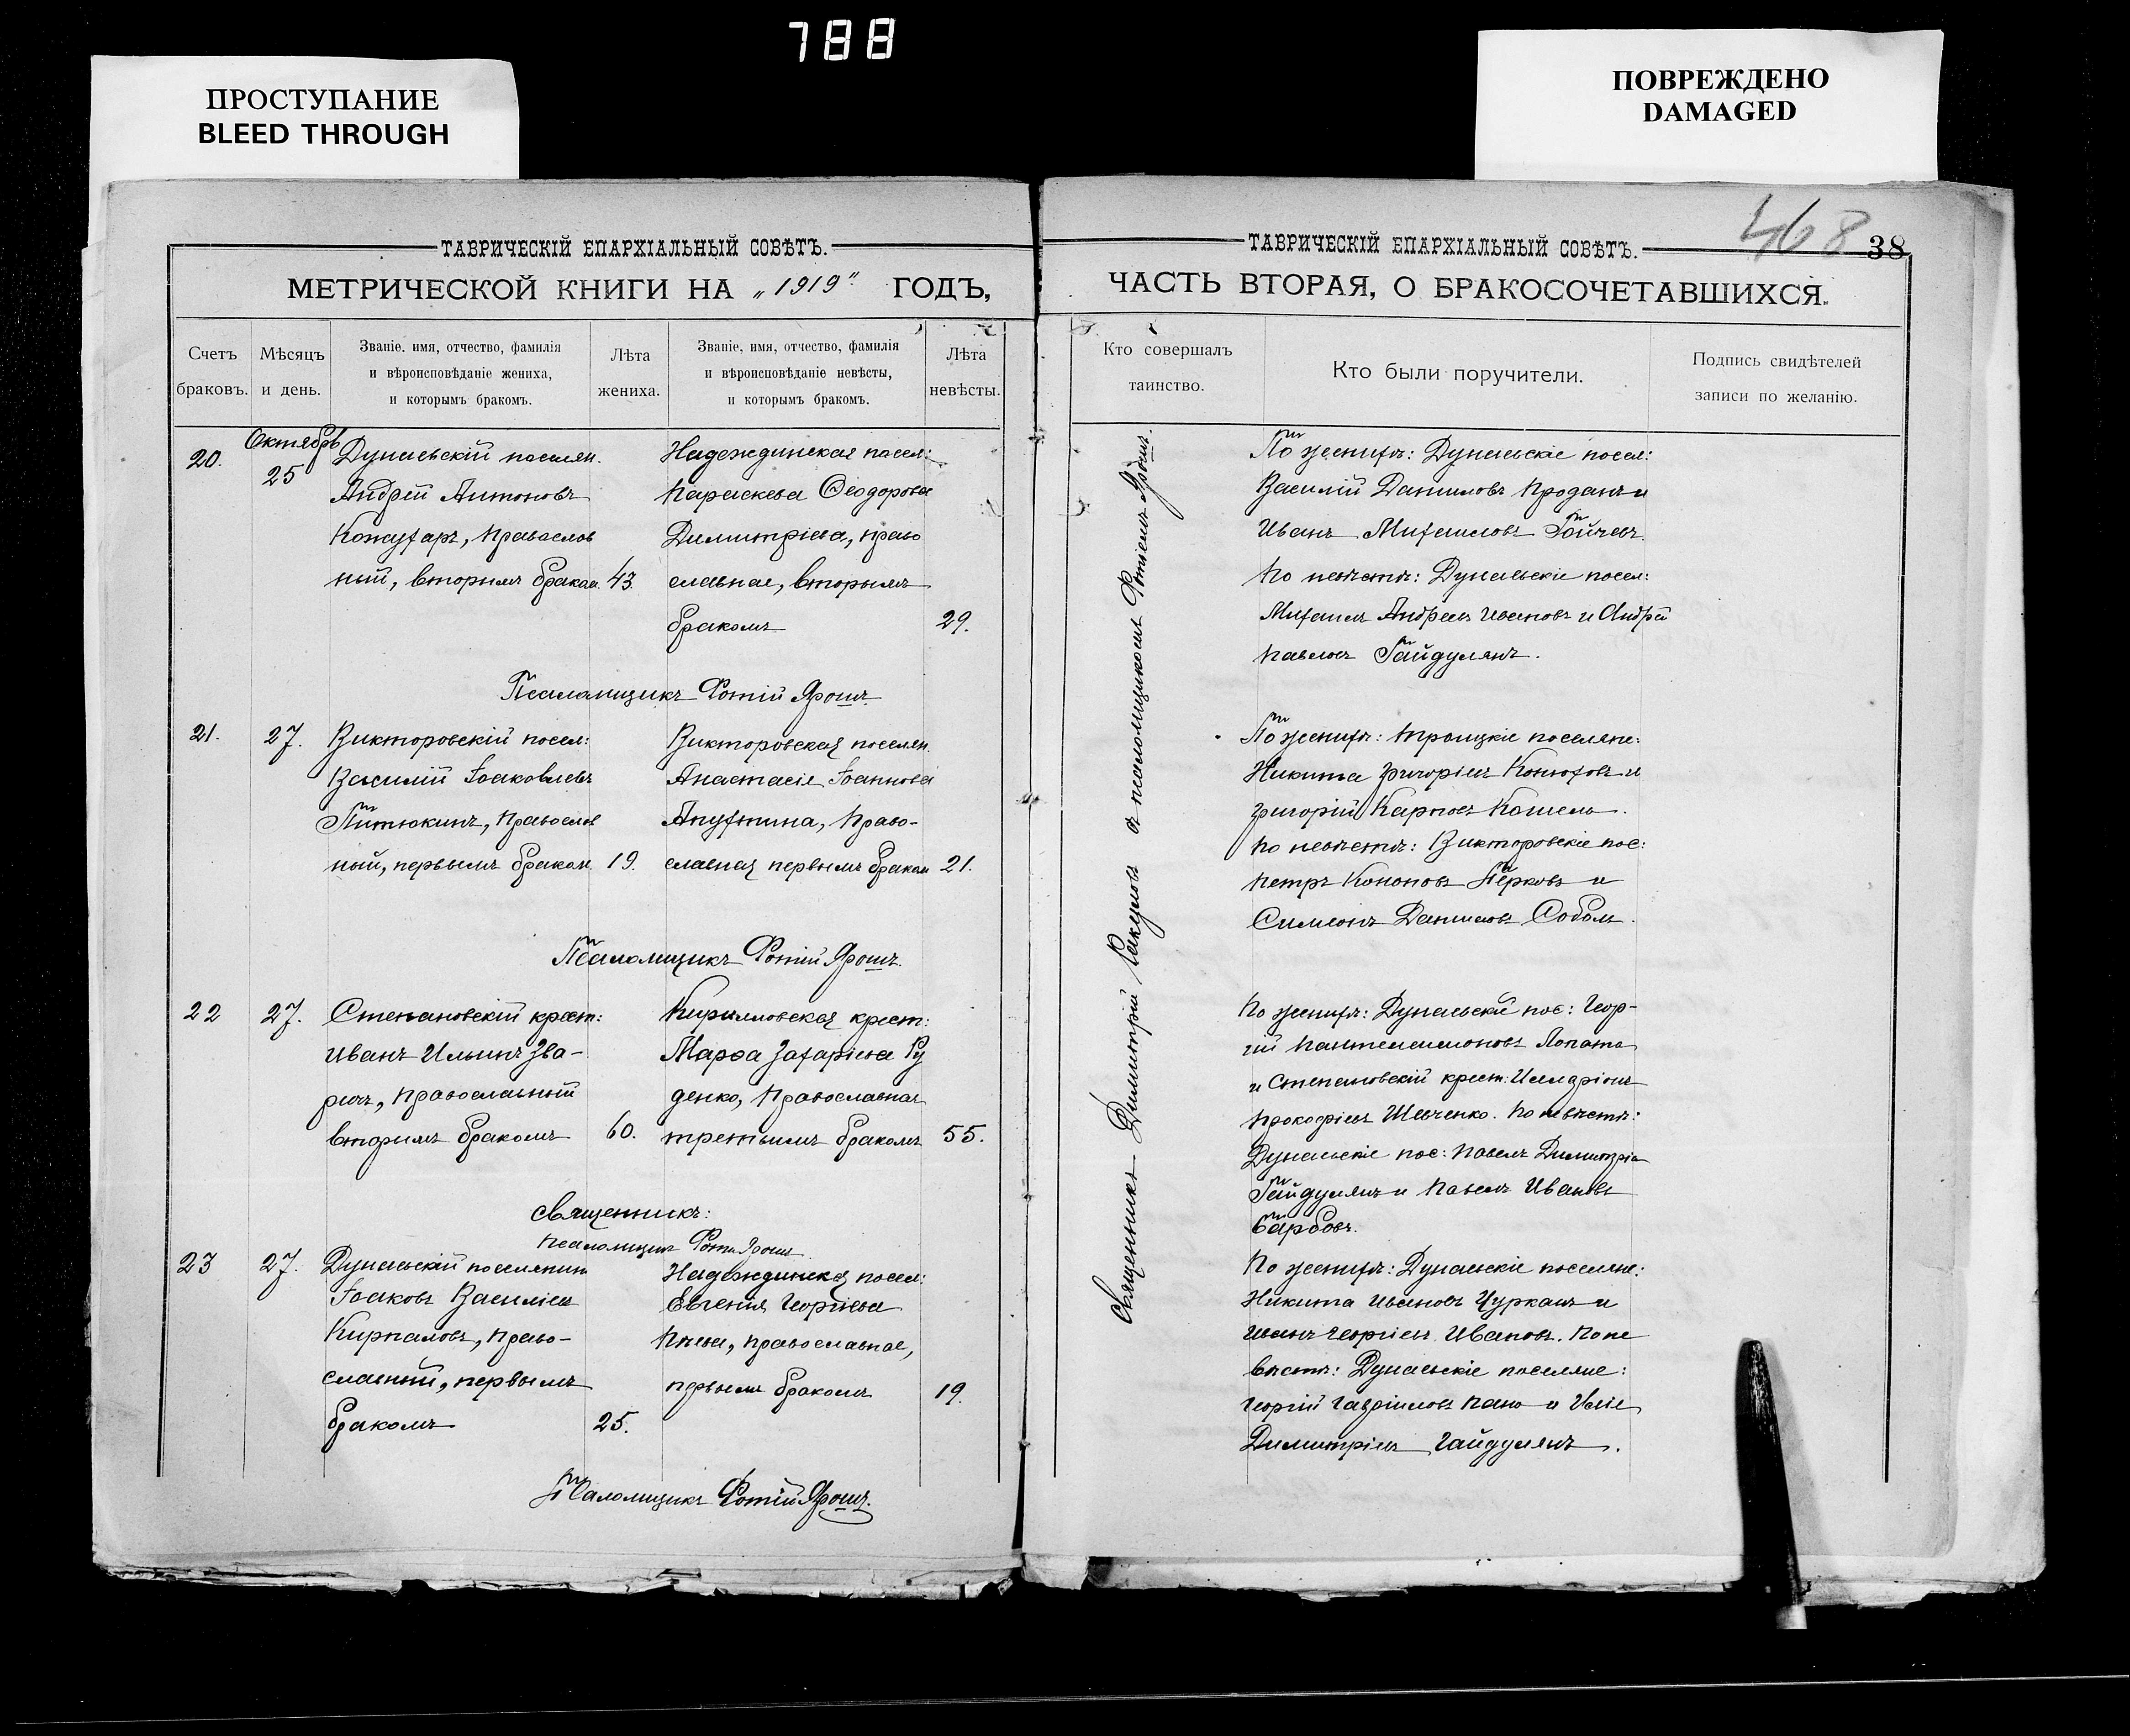 788
ПРОСТУПАНИЕ
BLEED THROUGH
ПОВРЕЖДЕНО
DAMAGED
ТАВРИЧЕСКІЙ ЕПАРХІАЛЬНЫЙ СОВѢТЪ.
МЕТРИЧЕСКОЙ КНИГИ НА „1919" ГОДЪ,
Счетъ браковъ.
Мѣсяцъ и день.
Званіе, имя, отчество, фамилія
и вѣроисповѣданіе жениха,
и которымъ бракомъ.
Лѣта жениха.
Званіе, имя, отчество, фамилія
и вѣроисповѣданіе невѣсты,
и которымъ бракомъ.
Лѣта невѣсты.
20.
Октябрь
25
Дунаевскій поселян.
Андрей Антоновъ
Кожухарь, православ
ный, вторымъ бракам. 43.
Надеждинская посел:
Параскева Ѳеодорова
Димитріева, право
славная, вторымъ
бракомъ 29.
Псаломщикъ Фотій Ярошъ
21. 27.
Викторовскій посел:
Василій Іаковлевъ
Питюкинъ, православ
ный, первымъ браком. 19.
Викторовская поселян.
Анастасія Іоаннова
Апухтина, право-
славная первымъ браком 21.
Псаломщикъ Фотій Ярошъ.
22 27.
Степановскій крест:
Иванъ Ильинъ Зва-
ричъ, православный
вторымъ бракомъ 60.
Кирилловская крест:
Марѳа Захаріева Ру
денко, православная
третьимъ бракомъ 55.
Священникъ:
Псаломщикъ Фотій Ярошъ
23 27.
Дунаевскій поселянин
Іаковъ Василіев
Кирпаловъ, право-
славный, первымъ
бракомъ 25.
Надеждинская посел:
Евгенія Георгіева
православная,
первымъ бракомъ 19.
Псаломщикъ Фотій Ярошъ.
468
38
ТАВРИЧЕСКІЙ ЕПАРХІАЛЬНЫЙ СОВѢТЪ.
ЧАСТЬ ВТОРАЯ, О БРАКОСОЧЕТАВШИХСЯ.
Кто совершалъ таинство.
Кто были поручители.
Подпись свидѣтелей записи по желанію.
Священникъ Димитрій съ псаломщикомъ Фотіемъ Ярошъ.
По женихѣ: Дунаевскіе посел:
Василій Даниловъ Проданъ и
Иванъ Михаиловъ Гойчевъ
По невѣстѣ: Дунаевскіе посел:
Михаилъ Андреевъ Ивановъ и Андрей
Павловъ Гайдулянъ.
По женихѣ: Троицкіе поселяне:
Никита Григоріевъ Конюховъ и
Григорій Карповъ Кошель.
По невѣстѣ: Викторовскіе пос:
Петръ Кононовъ Перковъ и
Симеонъ Даниловъ Соболь.
По женихѣ: Дунаевскій пос: Геор-
гій Пантелеимоновъ Лопата
и Степановскій крест: Илларіонъ
Прокофіевъ Шевченко. По невѣстѣ:
Дунаевскіе пос: Павелъ Димитріев
Гайдулянъ и Павелъ Ивановъ
Барбовъ.
По женихѣ: Дунаевскіе поселяне:
Никита Ивановъ Цурканъ и
Иванъ Георгіевъ Ивановъ. По не
вѣстѣ: Дунаевскіе поселяне:
Георгій Гавріиловъ и Илія
Димитріевъ Гайдулянъ.